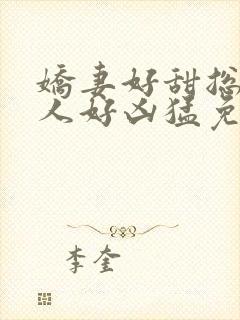 娇妻好甜揔
人好凶猛免
李奎